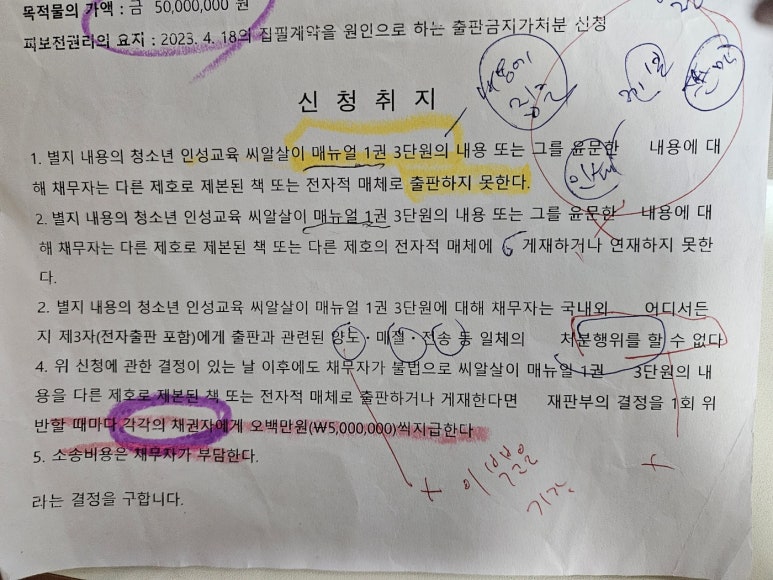 목적물의 가액 : 금 50,000,000 원
피보전권리의 요지 : 2023. 4. 18의 집필계약을 원인으로 하는 출판금지가처분 신청
신 청 취 지
1. 별지 내용의 청소년 인성교육 씨알살이 매뉴얼 1권 3단원의 내용 또는 그를 윤문한 내용에 대
해 채무자는 다른 제호로 제본된 책 또는 전자적 매체로 출판하지 못한다.
2. 별지 내용의 청소년 인성교육 씨알살이 매뉴얼 1권 3단원의 내용 또는 그를 윤문한 내용에 대
해 채무자는 다른 제호로 제본된 책 또는 다른 제호의 전자적 매체에 게재하거나 연재하지 못한
다.
2. 별지 내용의 청소년 인성교육 씨알살이 매뉴얼 1권 3단원에 대해 채무자는 국내외 어디서든
지 제3자(전자출판 포함)에게 출판과 관련된 양도·매절·전송 등 일체의 처분행위를 할 수 없다
4. 위 신청에 관한 결정이 있는 날 이후에도 채무자가 불법으로 씨알살이 매뉴얼 1권 3단원의 내
용을 다른 제호로 제본된 책 또는 전자적 매체로 출판하거나 게재한다면 재판부의 결정을 1회 위
반할 때마다 각각의 채권자에게 오백만원(₩5,000,000)씩지급한다
5. 소송비용은 채무자가 부담한다.
라는 결정을 구합니다.
이 부분은
기각